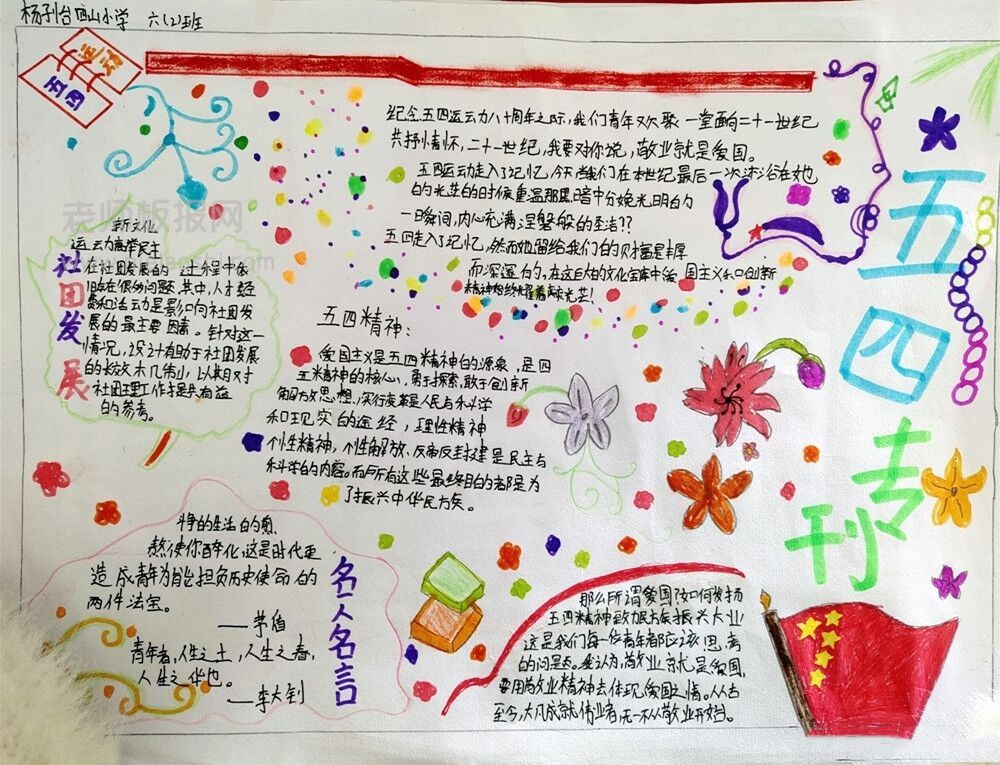 杨子台回山小学 六(2)班
五四
运动
纪念五四运动八十周年之际,我们青年欢聚一堂面向二十一世纪
共抒情怀,二十一世纪,我要对你说,敬业就是爱国。
五四运动走入了记忆,今天当我们在本世纪最后一次沐浴在她
的光芒的时候重温那黑暗中分娩光明白的
一瞬间,内心充满涅槃般的圣洁??
五四走入了记忆,然而她留给我们的财富是丰厚
而深邃的,在这巨大的文化宝库中爱国主义和创新
精神始终耀着光芒!
老师板报网
新文化
运动高举民主
社团发展
在社团发展的过程中依
旧存在很多问题,其中,人才经
费和活动是影响向社团发
展的最主要因素。针对这一
情况,设计有助于社团发展
的长效木几伟山,以期对
社团理工作才提共有益
的参考。
五四精神:
爱国主义是五四精神的源泉,是四
五精神的核心,勇于探索,敢于创新
解放思想,实行变革是人民与科学
和现实的途经,理性精神
个性精神,个性解放、反帝反封建是民主与
科学的内容。而所有这些最终目的者都是为
了振兴中华民族。
五四
专刊
斗争的生活的煎
熬使你醇化,这是时代要
造成青年为能担负历史使命的
两件法宝。
——茅盾
青年者,人生之王,人生之春,
人生之华也。
——李大钊
名人名言
那么所谓爱国?如何发扬
五四精神致力民族振兴大业!
这是我们每一位青年者都应该思考
的问题。我认为敬业就是爱国,
要用敬业精神去体现爱国之情。从古
至今,大凡成就伟业者,无一不从敬业开始。